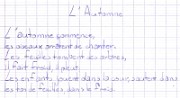 L'Automne
L'automne commence,
les oiseaux arrêtent de chanter.
Les feuilles tombent des arbres,
il fait froid, il pleut.
Les enfants jouent dans la cour, sautent dans
les tas de feuilles, dans le froid.